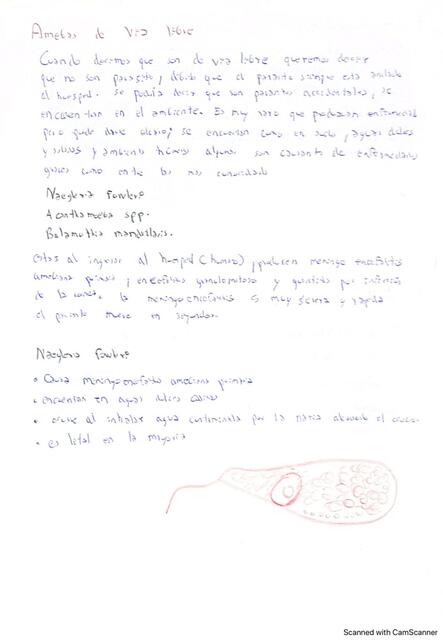 Amebas de vida libre
Cuando decimos que son de vida libre queremos decir
que no son parasito, debido que el parasito siempre esta
el huesped. Se podria decir que son parasitos accidentales, se
encuentran en el ambiente. Es muy raro que produzcan enfermedad
pero puede darse el caso, se encuentran como en suelo, aguas dulces
y ambiente algunas son causante de enfermedades
graves como entre las mas
Naegleria Fowleri
Acanthamoeba spp.
Balamuthia mandrillaris.
Estas al ingresar al huesped (humano), producen meningo encefalitis
amebiana primaria, encefalitis granulomatosa y queratitis por
de la cornea. la meningoencefalitis es muy severa y rapida
el paciente muere en
Naegleria Fowleri
• Causa meningoencefalitis amebiana primaria
• encuentran en aguas dulces
• ocurre al inhalar agua contaminada por la nariz el
• es letal en la mayoria
Scanned with CamScanner